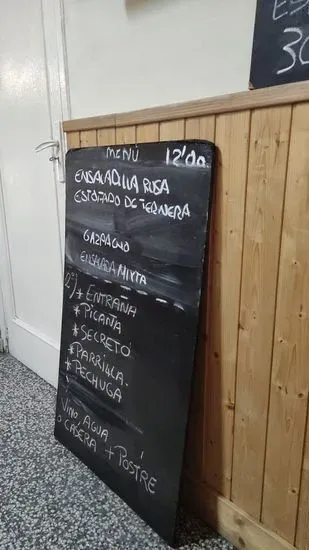 MENÚ 12'00
ENSALADILLA RUSA
ESTOFADO DE TERNERA
GAZPACHO
ENSALADA MIXTA
2º) * ENTRAÑA
* PICANTA
* SECRETO
* PARRILLA.
* PECHUGA
VINO AGUA
O CASERA + POSTRE
30